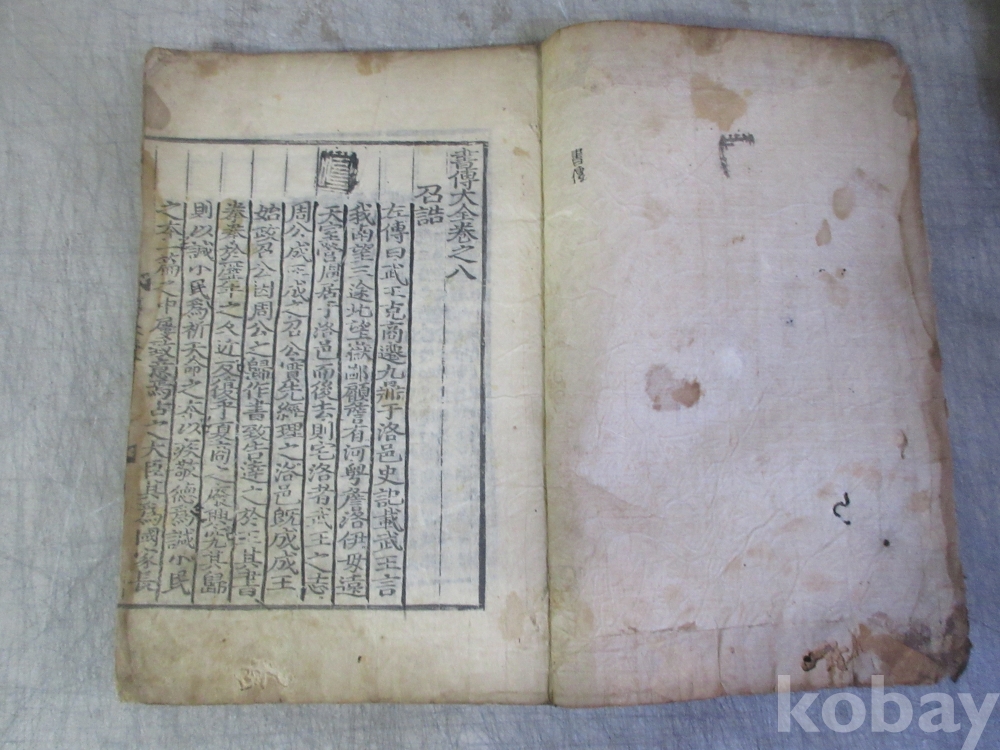 書傳大全卷之八
召誥
左傳曰武王克商遷九鼎于洛邑史記載武王言
我南望三途北望嶽鄙顧詹有河粤詹洛伊毋遠
天室營周居于洛邑而後去則宅洛者武王之志
周公成王成之召公實先經理之洛邑旣成成王
始政召公因周公之歸作書致告達之於王其書
拳拳於歷年之久近反復乎夏商之廢興究其歸
則以諴小民爲祈天命之本以疾敬德爲諴小民
之本一篇之中屢致意焉古之大臣其爲國家長
kobay